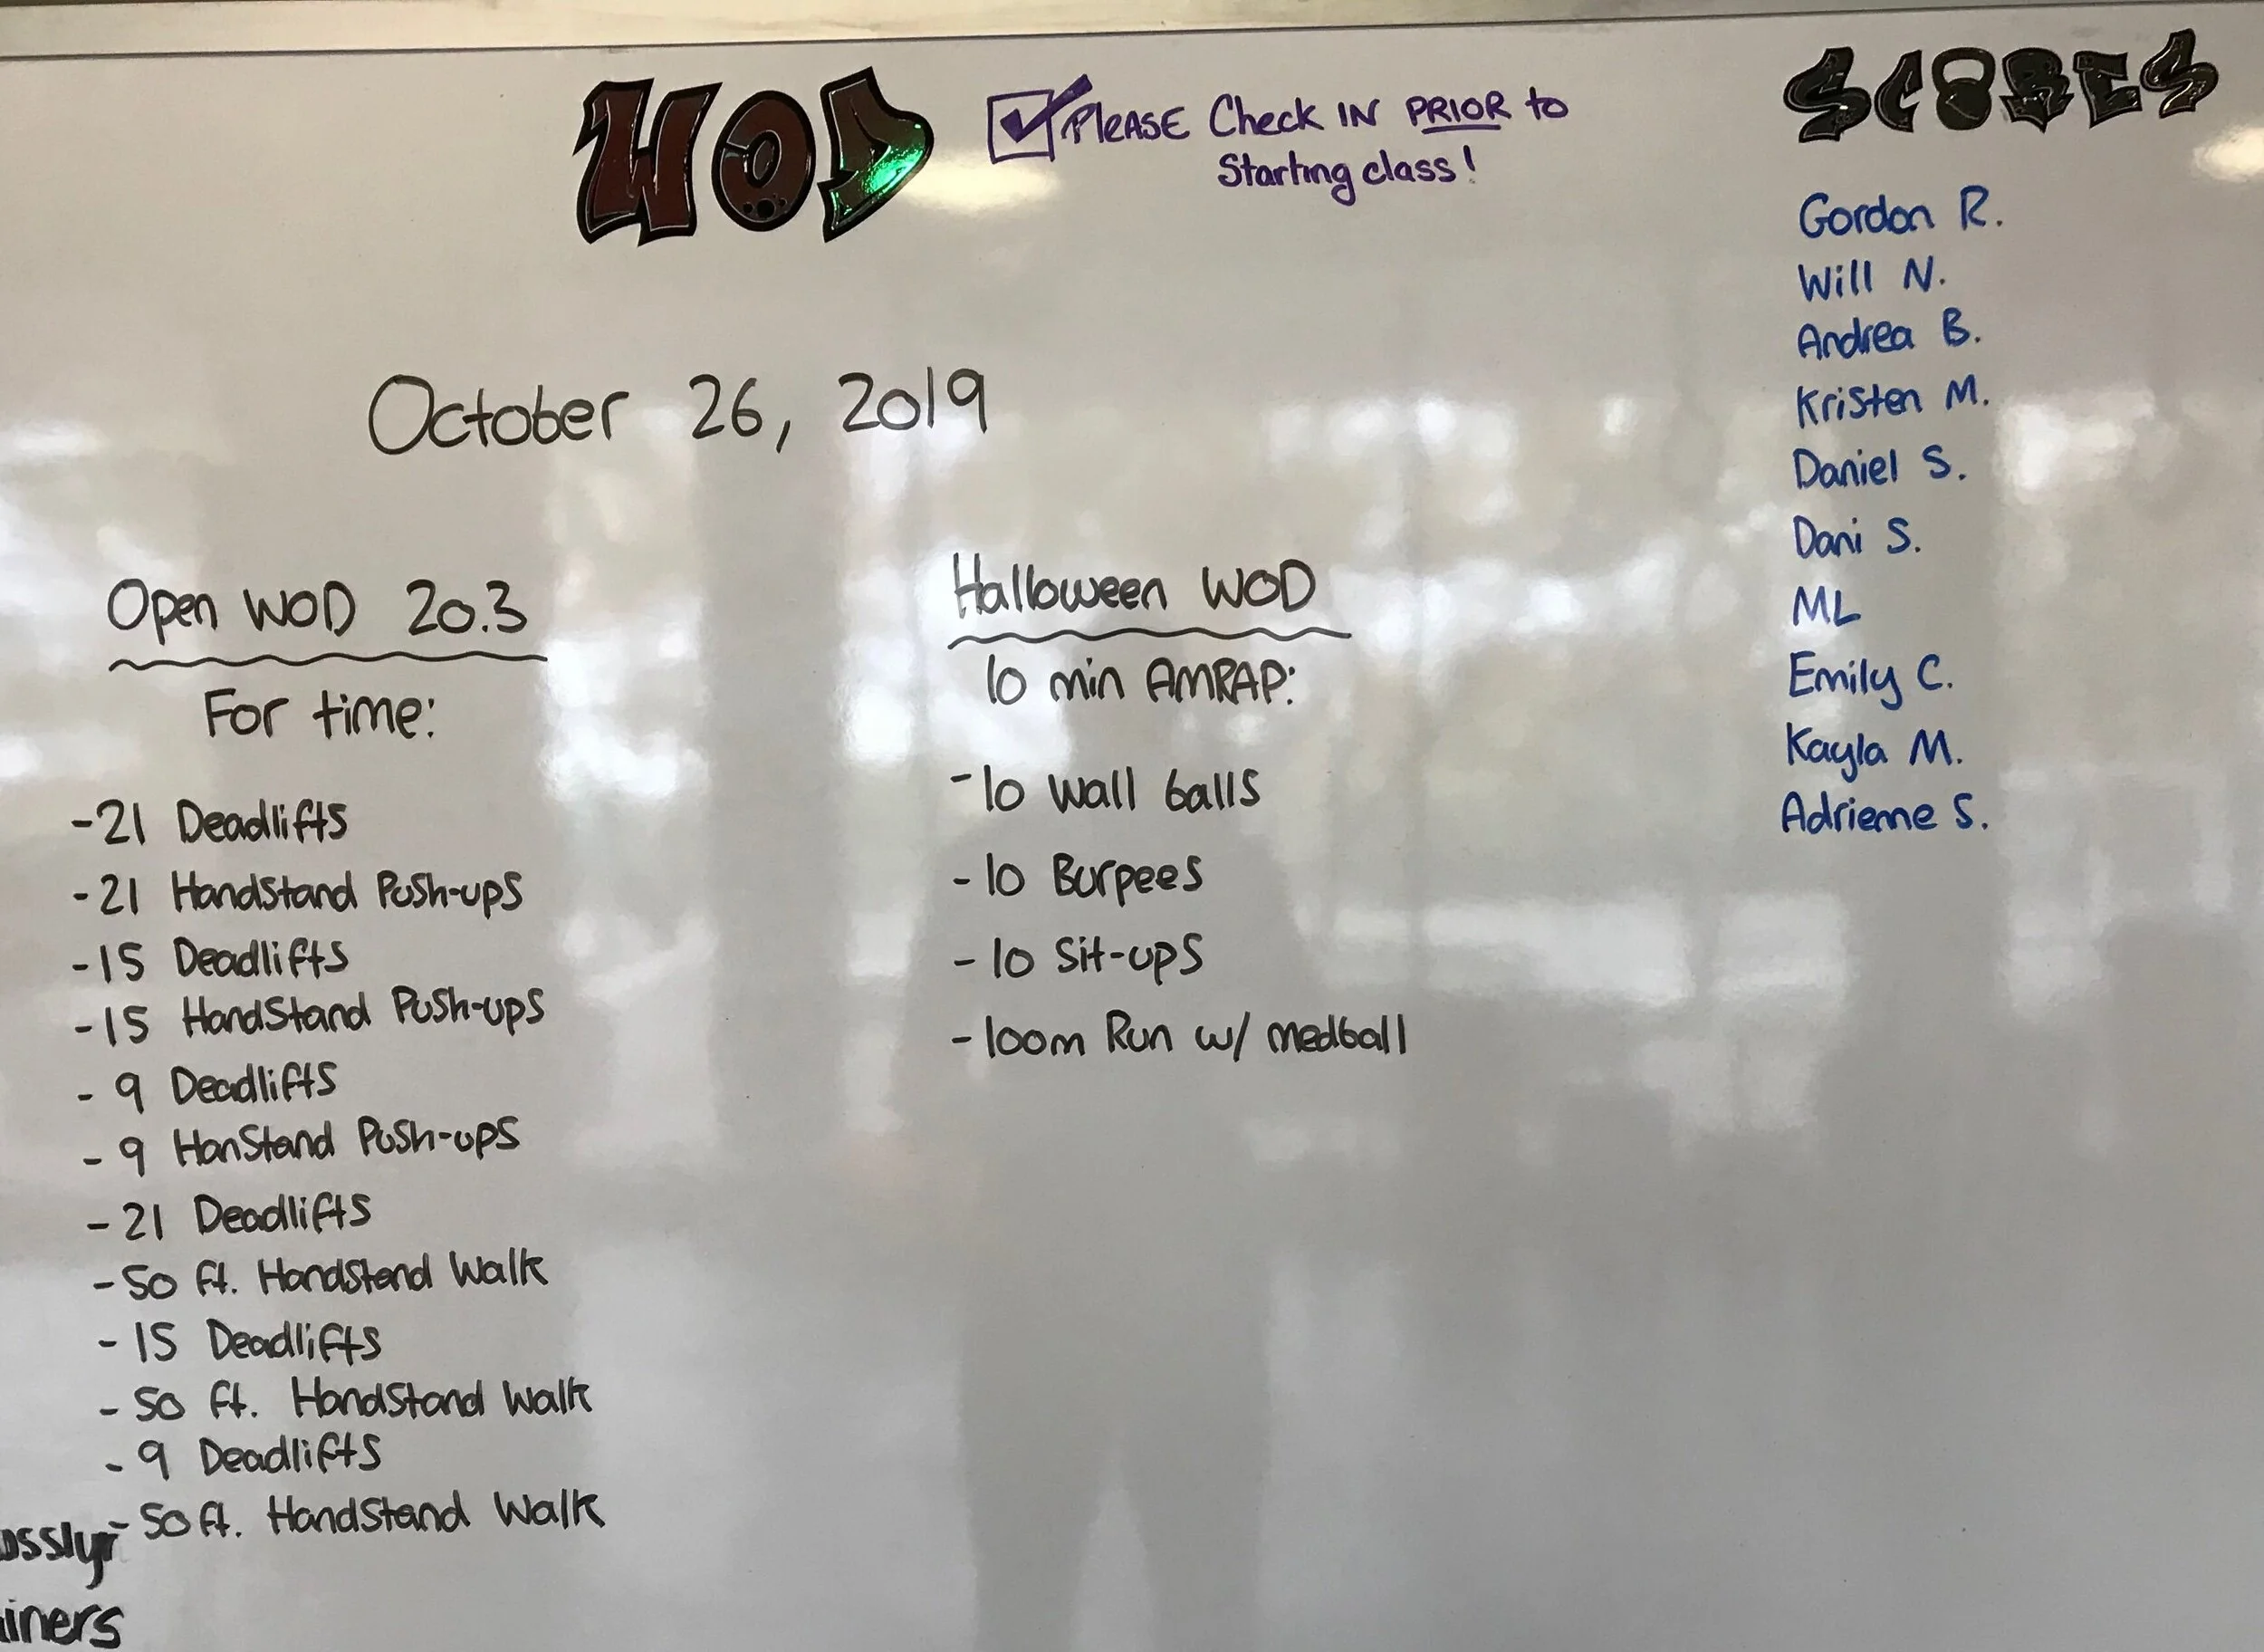 WOD
Please Check IN PRIOR to
Starting class!
SCORES
October 26, 2019
Open WOD 20.3
For time:
-21 Deadlifts
-21 HandStand Push-ups
-15 Deadlifts
-15 HandStand Push-ups
- 9 Deadlifts
- 9 HanStand Push-ups
-21 Deadlifts
-50 ft. HandStand Walk
- 15 Deadlifts
- 50 ft. HandStand Walk
- 9 Deadlifts
- 50 ft. HandStand Walk
Halloween WOD
10 min AMRAP:
-10 Wall balls
-10 Burpees
-10 Sit-ups
-100m Run w/ medball
Gordon R.
Will N.
Andrea B.
Kristen M.
Daniel S.
Dani S.
ML
Emily C.
Kayla M.
Adrienne S.